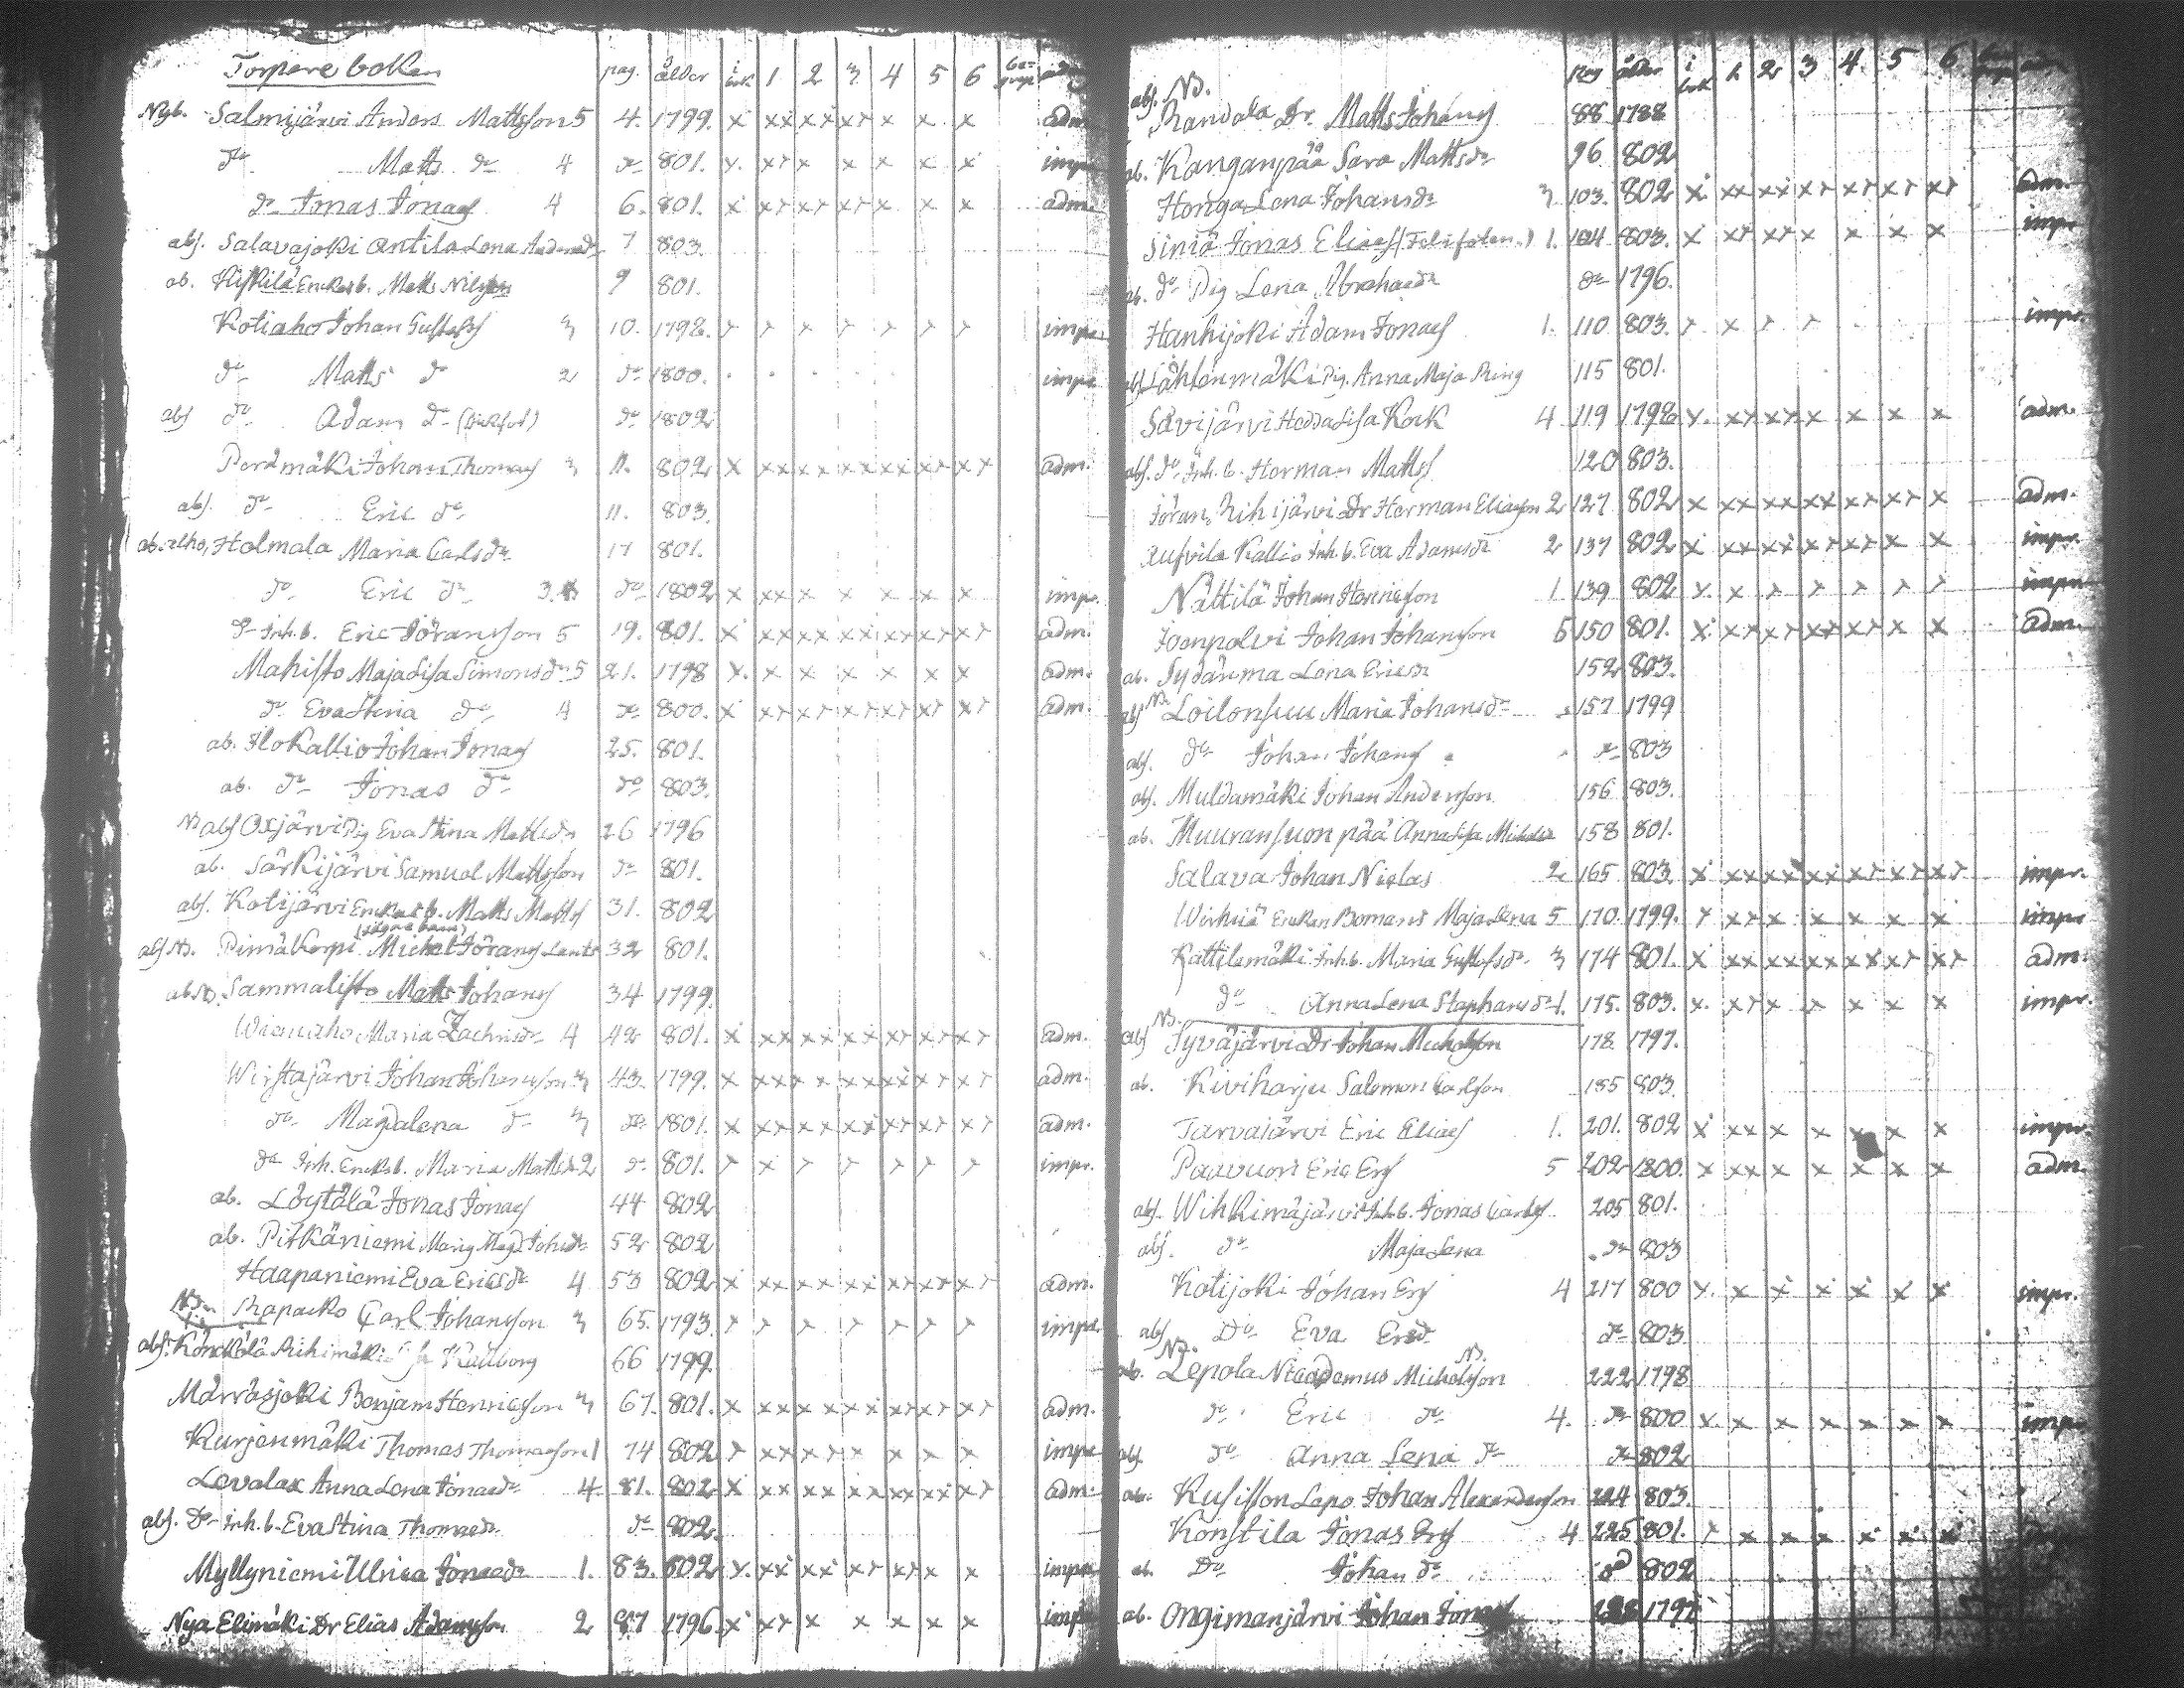 Torpare boken pag. ålder i bok 1 2 3 4 5 6 be-grep adm.
Nyb. Salmijärvi Anders Mattsson 5 4. 1799. x xx xx xx x x x adm.
do Matts do 4 do 801. x. xxx x x x x impr.
do Jonas Jonass 4 6. 801. x xx xx xx x x x adm.
abs. Salavajoki Antila Lena Andersdr 7 803.
ab. Kiskilä Enckas b. Matts Nilsson 9 801.
Kotiaho Johan Gustafss 3 10. 1798. x x x x x x x impr.
do Matts do 2 do 1800. impr.
abs do Adam do do 1802
Perämäki Johan Thomass 3 11. 802 x xx xx xx xx xx xx adm.
abs. do Eric do 11. 803.
ab. alho, Holmala Maria Carlsdr 17 801.
do Eric do 3. do 1802 x xx x x x x x impr.
do Inh. b. Eric Jöransson 5 19. 801. x xx xx xx xx xx xx adm.
Mahisto Maja Lisa Simonsdr 5 21. 1798 x. x x x x x x adm.
do Eva Stina do 4 do 800. x xx xx xx xx xx xx adm.
ab. Ilokallio Johan Jonass 25. 801.
ab. do Jonas do do 803.
NB abs Oxjärvi Pig Eva Stina Mattsdr 26 1796
ab. Särkijärvi Samuel Mattsson do 801.
abs. Kotijärvi Enckas b. Matts Mattss 31. 802
abs NB. Pimäkorpi Michel Jöranss 32 801.
abs NB. Sammalisto Matts Johanss 34 1799.
Maria Zachrisdr 4 42 801. x xx xx xx xx xx xx adm.
Wirstajärvi Johan Johansson 3 43. 1799. x xx xx xx xx xx xx adm.
do Magdalena do 3 do 1801. x xx xx xx xx xx xx adm.
do Inh. Encks b. Maria Mattsdr 2 do 801. x x x x x x x impr.
ab. Löytälä Jonas Jonass 44 802
ab. Pitkäniemi Maria Magd. Johsdr 52 802
Haapaniemi Eva Ericsdr 4 53 802 x xx xx xx xx xx xx adm.
NB. Rapacko Carl Johansson 3 65. 1793. x x x x x x x impr.
abs. Könckölä Riihimäki Kallberg 66 1799.
Märräsjoki Benjam Henricsson 3 67. 801. x xx xx xx xx xx xx adm.
Kurjenmäki Thomas Thomasson 1 74 802 x xx xx x x x x impr
Levalax Anna Lena Jonasdr 4 81. 802 x xx xx xx xx xx xx adm.
abs. Do Inh. b. Eva Stina Thomasdr do 802.
Myllyniemi Ulrica Jonasdr 1. 83. 802 x. xx xx xx xx x x impr
Nya Elimäki Dr Elias Adamsson 2 87 1796. x xx x x x x x impr
pag ålder i bok 1. 2 3 4. 5 6
abs. NB. Randala Dr. Matts Johanss 88 1788
ab. Kanganpää Sara Mattsdr 96 802
Honga Lena Johansdr 3 103. 802 x xx xx xx xx xx xx adm.
Siniä Jonas Eliass 1. 104 803. x xx xx x x x x impr.
ab. do Pig Lena Abrahasdr do 1796.
Hanhijoki Adam Jonass 1. 110 803. x x x x impr.
abs Lähteenmäki Pig. Anna Maja Ring 115 801.
Savijärvi Hedda Lisa Kock 4 119 1798 x. xx xx x x x x adm.
abs. do Inh. b. Herman Mattss 120 803.
Jöran, Rihijärvi Dr Herman Eliasson 2 127 802 x xx xx xx xx xx x adm.
Kallio Inh. b. Eva Adamsdr 2 137 802 x xx xx xx xx x x impr.
Nättilä Johan Henricsson 1 139 802 x. x x x x x x impr
Joenpolvi Johan Johansson 5 150 801. x xx xx xx xx x x adm.
ab. Sydänma Lena Ericsdr 152 803.
abs NB. Loilonsuu Maria Johansdr 157 1799
abs. do Johan Johanss do 803
abs. Muldamäki Johan Andersson 156 803.
ab. Muuransuonpää Anna Lisa Michelsdr 158 801.
Salava Johan Niclas 2 165 803. x xx xx xx xx xx xx impr.
Wirhiä Enckan Bomans Maja Lena 5 170. 1799. x xx x x x x x impr
Kattilamäki Inh. b. Maria Gustafsdr 3 174 801. x xx xx xx xx xx xx adm.
do Anna Lena Staphansdr 1. 175. 803. x. xx x x x x x impr.
abs NB. Syväjärvi Dr Johan Michelsson 178 1797.
ab. Kiviharju Salomon Carlsson 185 803.
Tarvajärvi Eric Eliass 1. 201. 802 x xx x x x x x impr.
Paavuori Eric Ers 5 202 1800. x xx x x x x x adm.
abs. Wihkimäjärvi Inh. b. Jonas Carlss 205 801.
abs. do Maja Lena do 803
Kotijoki Johan Ers 4 217 800 x. x x x x x x impr.
abs Do Eva Ersdr do 803.
ab. NB. Lepola Nicodemus Michelsson NB. 222 1798
do Eric do 4. do 800 x. x x x x x x impr
abs. do Anna Lena do do 802
ab. Kusisson Lepo Johan Alexandersson 224 803.
Konstila Jonas Ers 4 225 801. x x x x x x x
ab. Do Johan do do 802
ab. Ongimanjärvi Johan Jonass